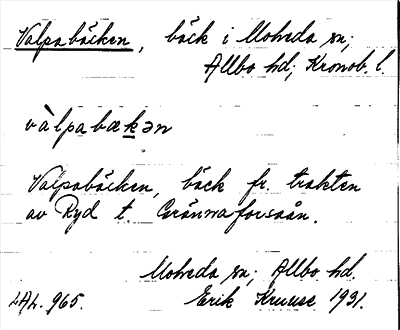 Valpabäcken, bäck i Moheda sn;
Allbo hd; Kronob. l.
vàlpabækən
Valpabäcken, bäck fr. trakten
av Ryd t. Grännaforsaån.
Moheda sn; Allbo hd.
LAL. 965. Erik Kruuse 1931.